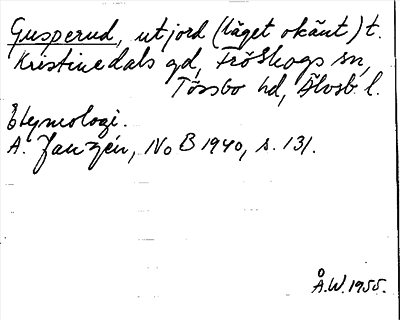 Gusperud, utjord (läget okänt) t.
Kristinedals gd, Fröskogs sn,
Tössbo hd, Älvsb. l.
Etymologi.
A. Janzén, NoB 1940, s. 131.
Å.W. 1955.